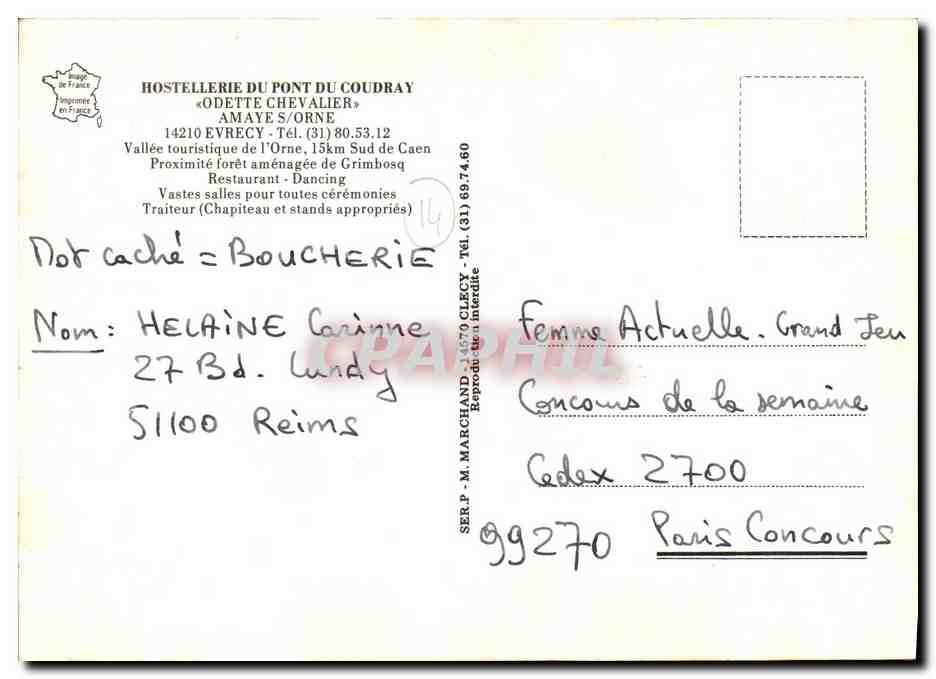 Image
de France
Imprimée
en France
HOSTELLERIE DU PONT DU COUDRAY
«ODETTE CHEVALIER»
AMAYE S/ORNE
14210 EVRECY - Tél. (31) 80.53.12
Vallée touristique de l'Orne, 15km Sud de Caen
Proximité forêt aménagée de Grimbosq
Restaurant - Dancing
Vastes salles pour toutes cérémonies
Traiteur (Chapiteau et stands appropriés)
14
Mot caché = BOUCHERIE
Nom : HELAiNE Corinne
27 Bd. Lundy
51100 Reims
SER.P - M. MARCHAND - 14570 CLECY - Tél. (31) 69.74.60
Reproduction interdite
Femme Actuelle. Grand Jeu
Concours de la semaine
Cedex 2700
99270 Paris Concours
CPAPHIL